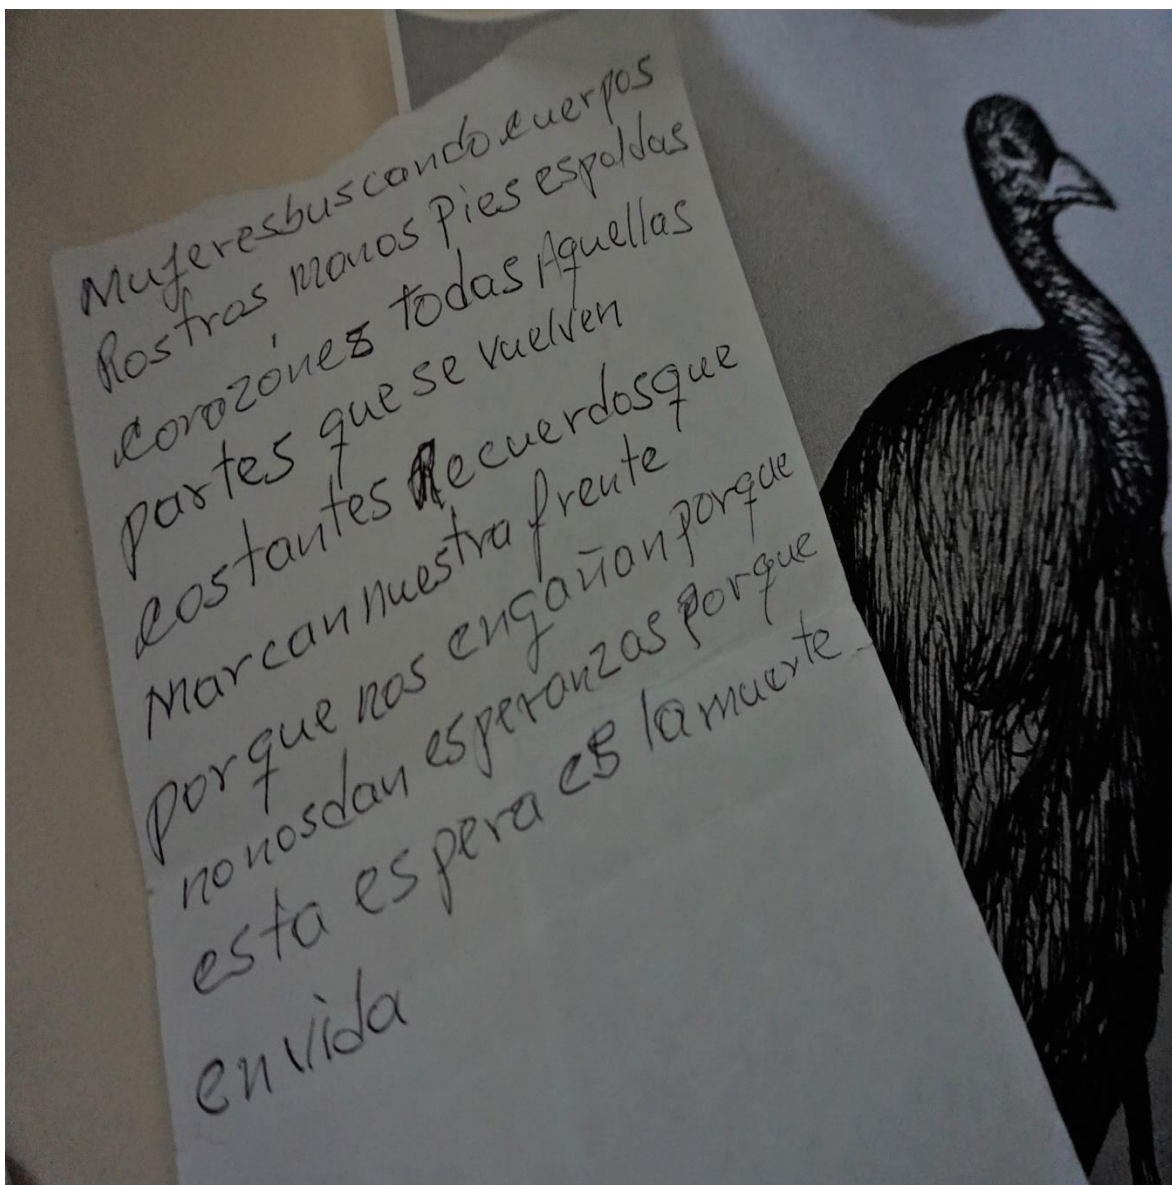 Mujeres buscando cuerpos
Rostros manos Pies espaldas
corazónes todas Aquellas
partes que se vuelven
costantes Recuerdos que
Marcan nuestra frente
porque nos engañan porque
no nos dan esperanzas porque
esta espera es la muerte
en vida